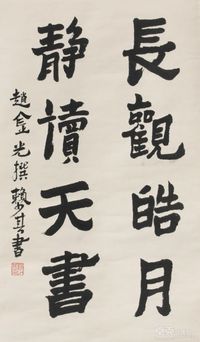 長觀皓月
静讀天書
趙金光撰賴其書